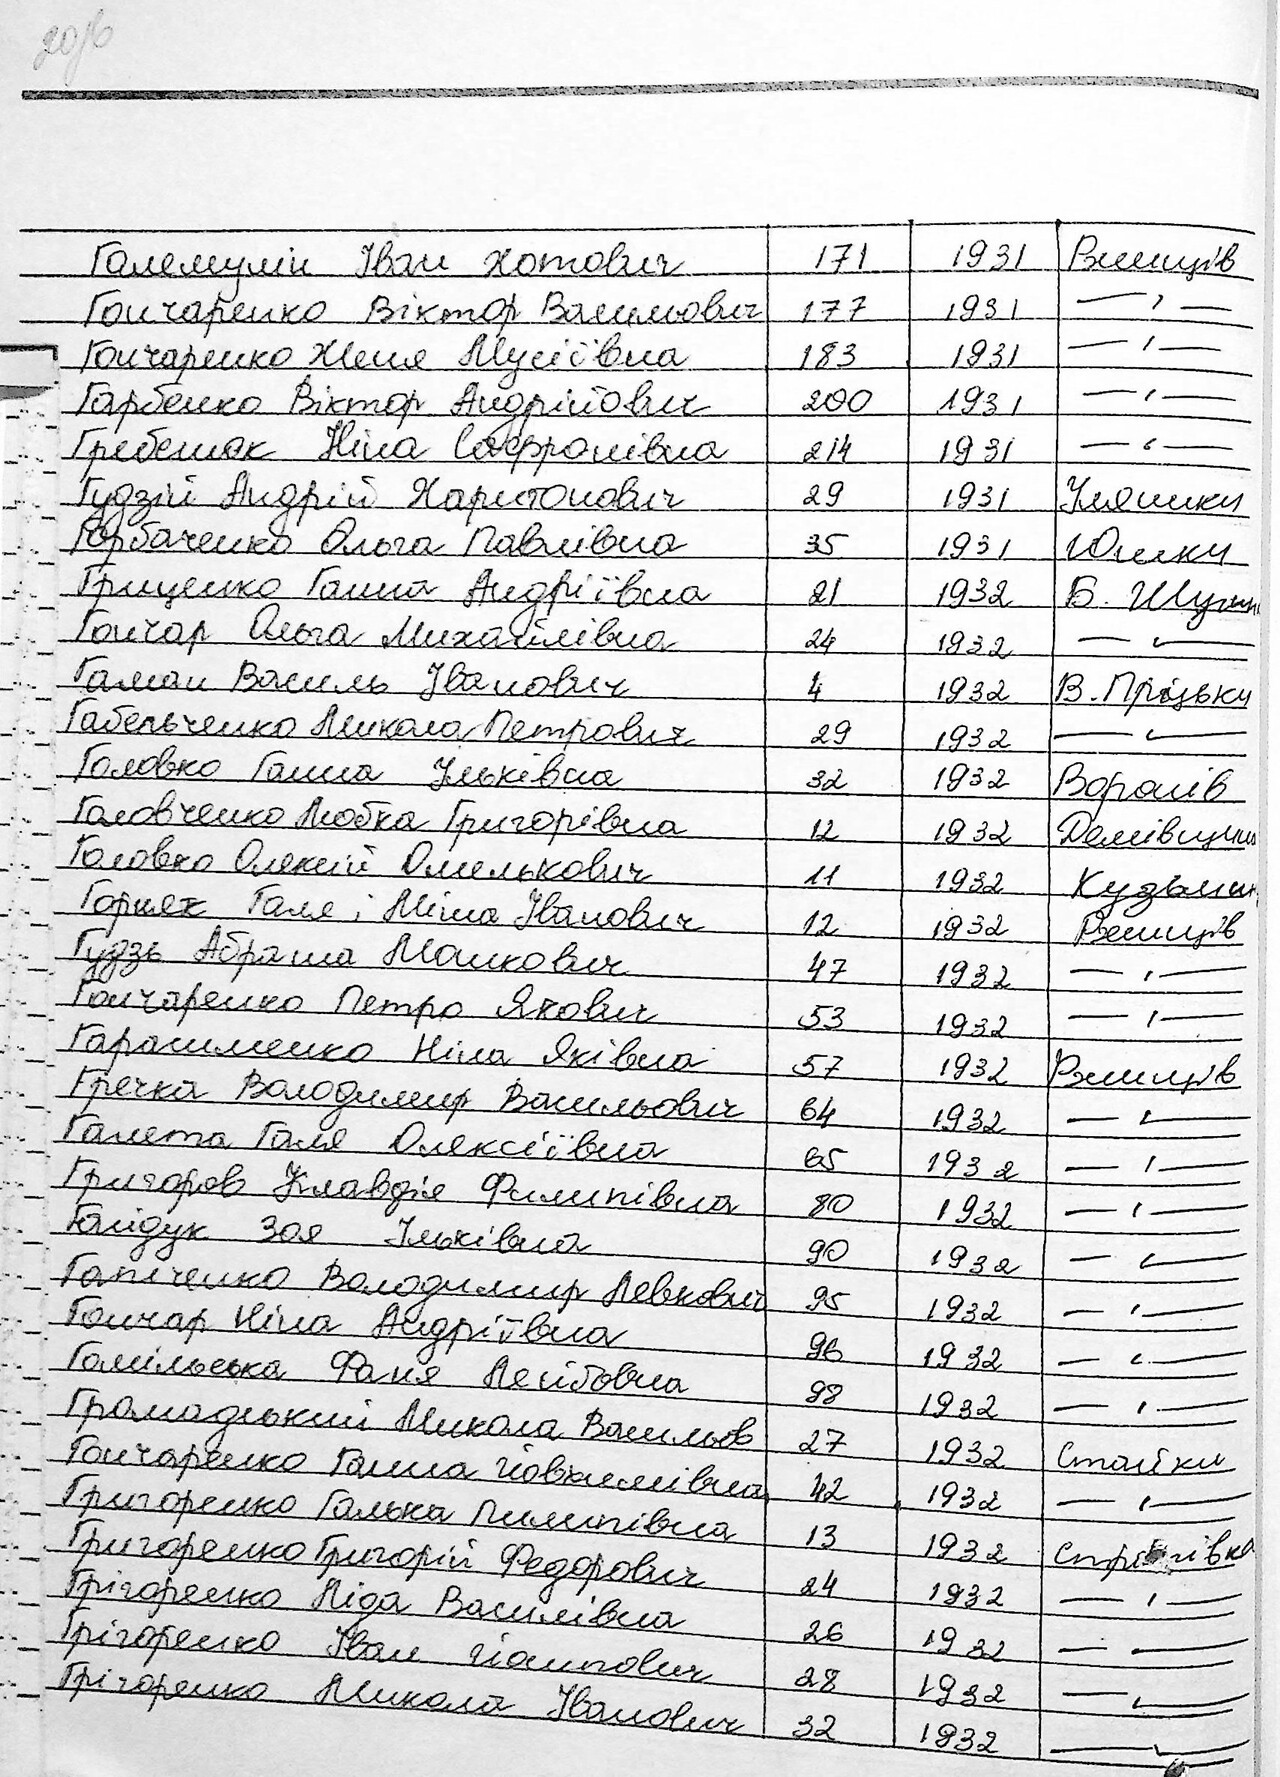 Галемулін Іван Хотович 171 1931 Ржищів
Гончаренко Віктор Васильович 177 1931 — " —
Гончаренко Женя Мусіївна 183 1931 — " —
Гарбенко Віктор Андрійович 200 1931 — " —
Гребешок Ніна Софронівна 214 1931 — " —
Гудзій Андрій Харитонович 29 1931 Уляники
Горбаченко Ольга Павлівна 35 1931 Юшки
Гриценко Ганна Андріївна 21 1932 Б.
Гончар Ольга Михайлівна 24 1932 — " —
Гаман Василь Іванович 4 1932 В. Пріцьки
Габельченко Микола Петрович 29 1932 — " —
Головко Ганна Ульківна 32 1932 Воронів
Головченко Любка Григорівна 12 1932 Демівщина
Головко Олексій Омелькович 11 1932 Кузьмин
Горняк Галя і Міша Іванович 12 1932 Ржищів
Гудзь Абраша Моткович 47 1932 — " —
Гончаренко Петро Якович 53 1932 — " —
Гарашченко Ніна Яківна 57 1932 Ржищів
Гречка Володимир Васильович 64 1932 — " —
Галета Галя Олексіївна 65 1932 — " —
Григоров Клавдія Филипівна 80 1932 — " —
Гайдук Зоя Ільківна 90 1932 — " —
Гапіченко Володимир Левкович 95 1932 — " —
Гончар Ніна Андріївна 96 1932 — " —
Гомільська Фаня Лейбовна 98 1932 — " —
Громадський Микола Васильов 27 1932 Стайки
Гончаренко Ганна Йовхимівна 42 1932 — " —
Григоренко Галька Пилипівна 13 1932
Григоренко Григорій Федорович 24 1932 — " —
Грігоренко Ліда Василівна 26 1932 — " —
Грігоренко Іван Йосипович 28 1932 — " —
Грігоренко Микола Іванович 32 1932 — " —